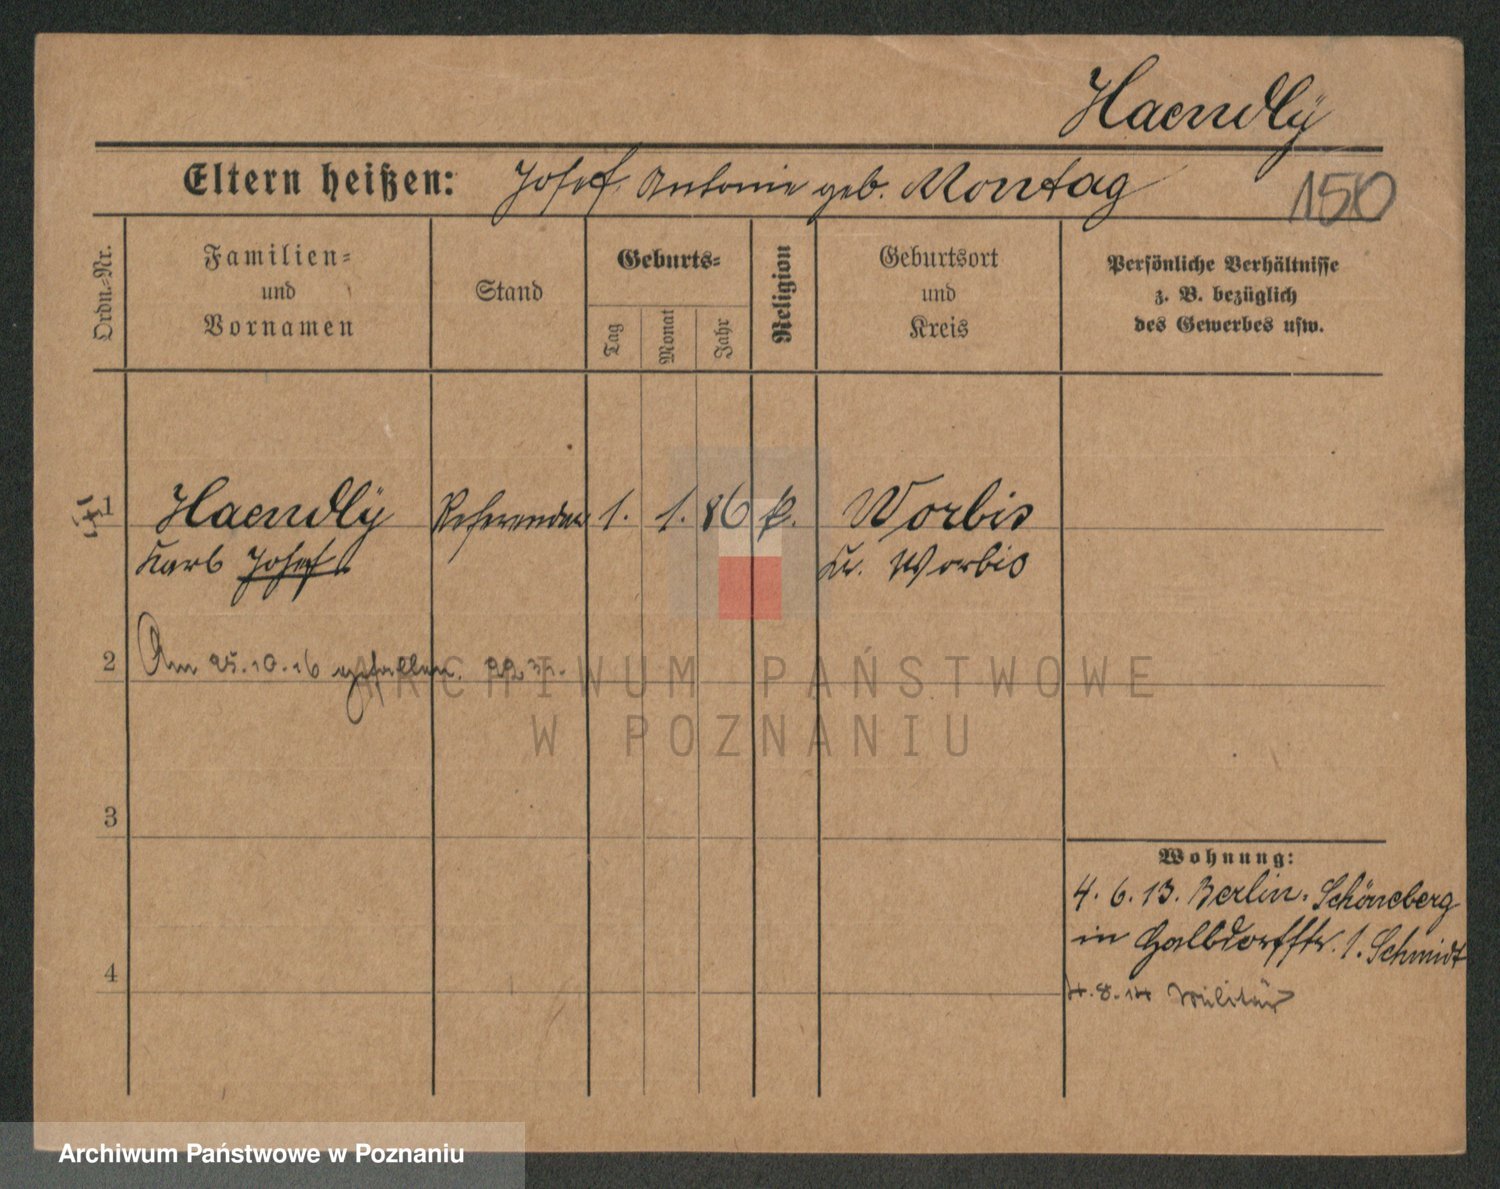 Haendly
Eltern heißen: Josef, Antonie geb. Montag
150
Ordn.-Nr.
Familien-
und
Vornamen
Stand
Geburts-
Tag
Monat
Jahr
Religion
Geburtsort
und
Kreis
Persönliche Verhältnisse
z. B. bezüglich
des Gewerbes usw.
1 Haendly Referendar 1. 1. 86 k. Worbis
Karl Josef Kr. Worbis
2 Am 25.10.16 gefallen.
3
4
Wohnung:
4. 6. 13. Berlin-Schöneberg
in 1. Schmidt
4.8.14 Militär
ARCHIWUM PAŃSTWOWE
W POZNANIU
Archiwum Państwowe w Poznaniu